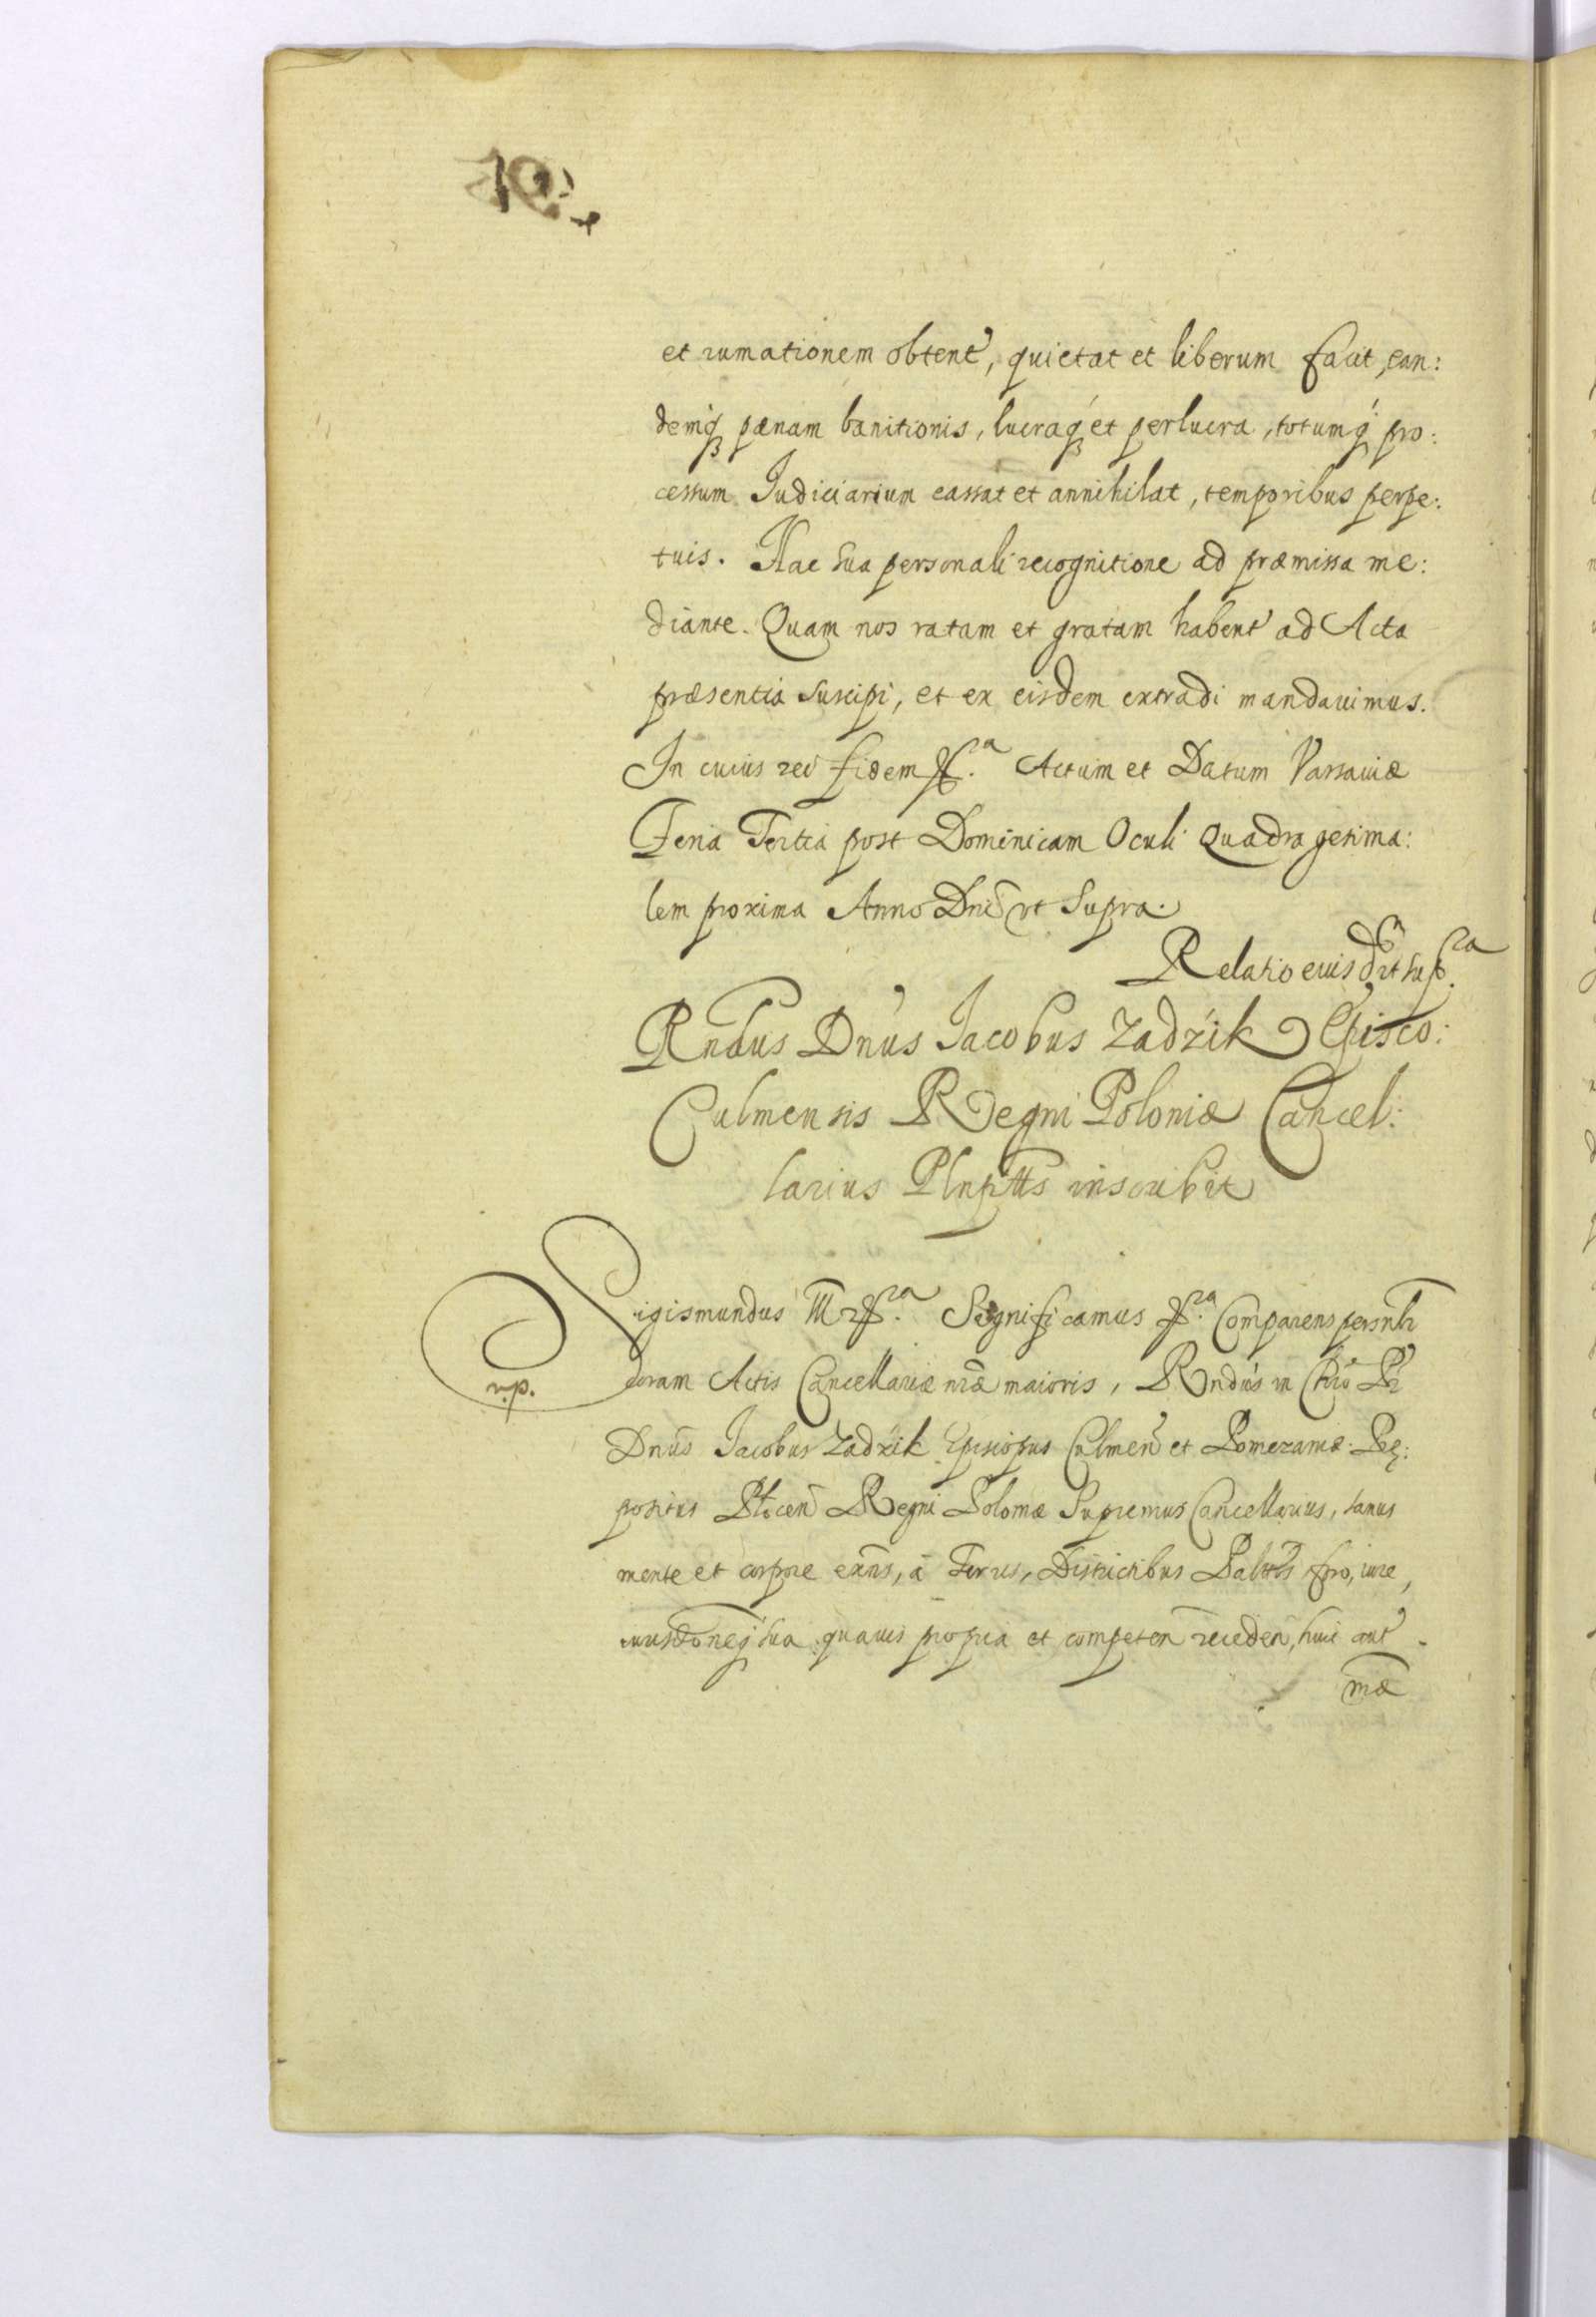 et rumationem obtent, quietat et liberum facit, ean:
demq́ꝫ pœnam banitionis, lucraq́ꝫ et perlucra, totumq́ pro:
cessum Iudiciarium cassat et annihilat, temporibus perpe:
tuis. Hac sua personali recognitione ad præmissa me:
diante. Quam nos ratam et gratam habent ad Acta
præsentia suscipi, et ex eisdem extradi mandauimus.
In cuius rei fidem Actum et Datum Varsauiæ
Feria Tertia post Dominicam Oculi Quadragesima:
lem proxima Anno Dni vt supra.
Relatio eiusd vt sup.ra
Rndus Dnus Iacobus Zadźik Episco:
Culmensis Regni Poloniæ Cancel:
larius inscribit
Sigismundus III Significamus Comparens persnlr
coram Actis Cancellariæ nræ maioris, Rndus in Chro Pr
Dnus Iacobus Zadźik Episcopus Culmen et Pomezaniæ. Præ:
positus Regni Poloniæ Supremus Cancellarius, sanus
mente et corpore exns, à Terris, Districtibus fro, iure,
sua quauis propria et competen receden, huic aut